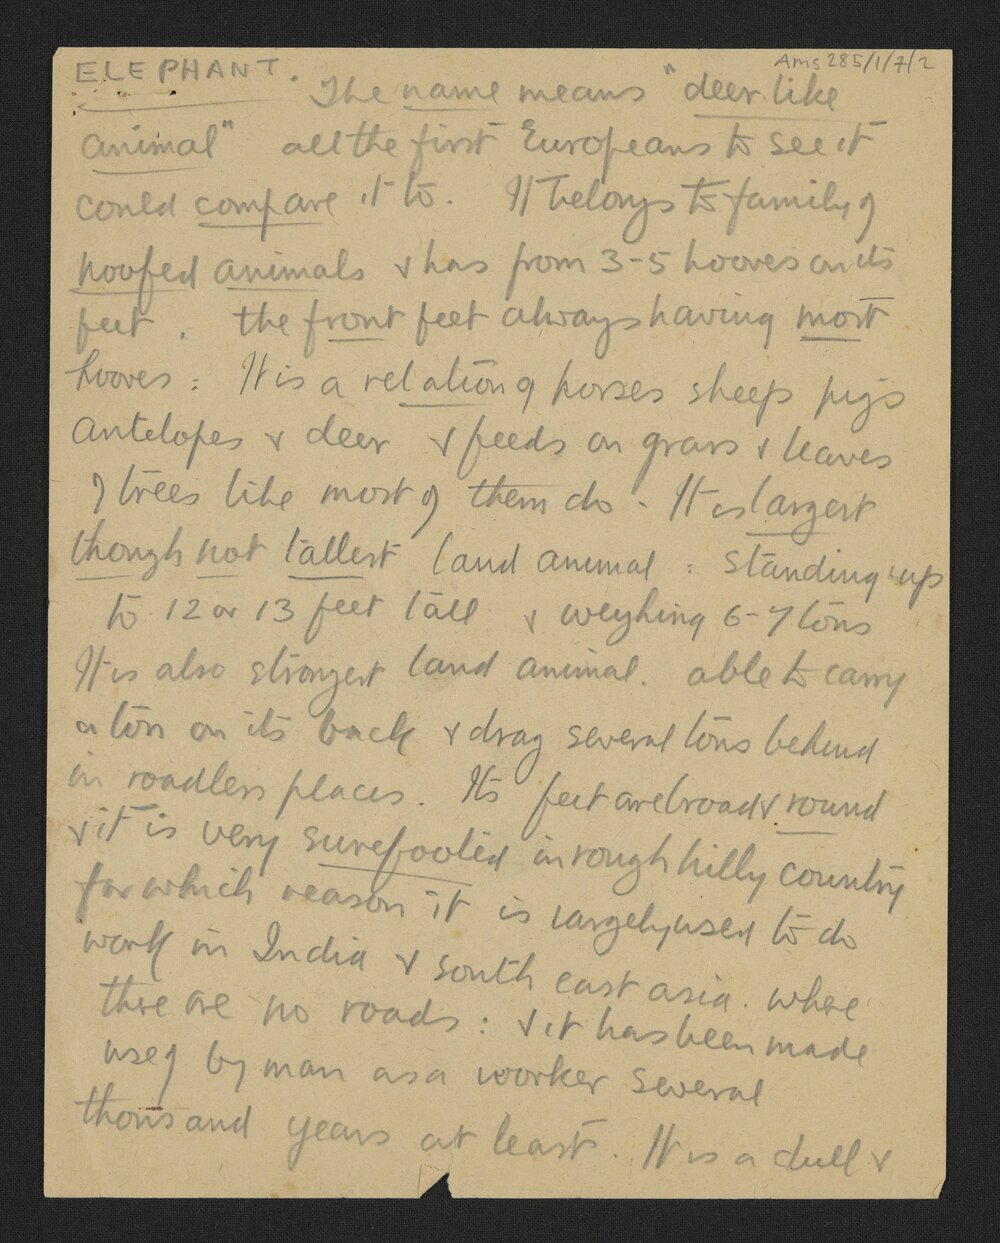 Ams 285/1/7/2
ELEPHANT. The name means "deer like
animal" all the first Europeans to see it
could compare it to. It belongs to family of
hoofed animals & has from 3-5 hooves on its
feet. the front feet always having most
hooves: It is a relation of horses sheep pigs
antelopes & deer & feeds on grass & leaves
of trees like most of them do - It is largest
though not tallest land animal: standing up
to 12 or 13 feet tall & weighing 6-7 tons
It is also strongest land animal. able to carry
a ton on its back & drag several tons behind
in roadless places. Its feet are broad & round
& it is very surefooted in rough hilly country
for which reason it is largely used to do
work in India & south east asia. where
there are no roads: & it has been made
use of by man as a worker several
thousand years at least. It is a dull &